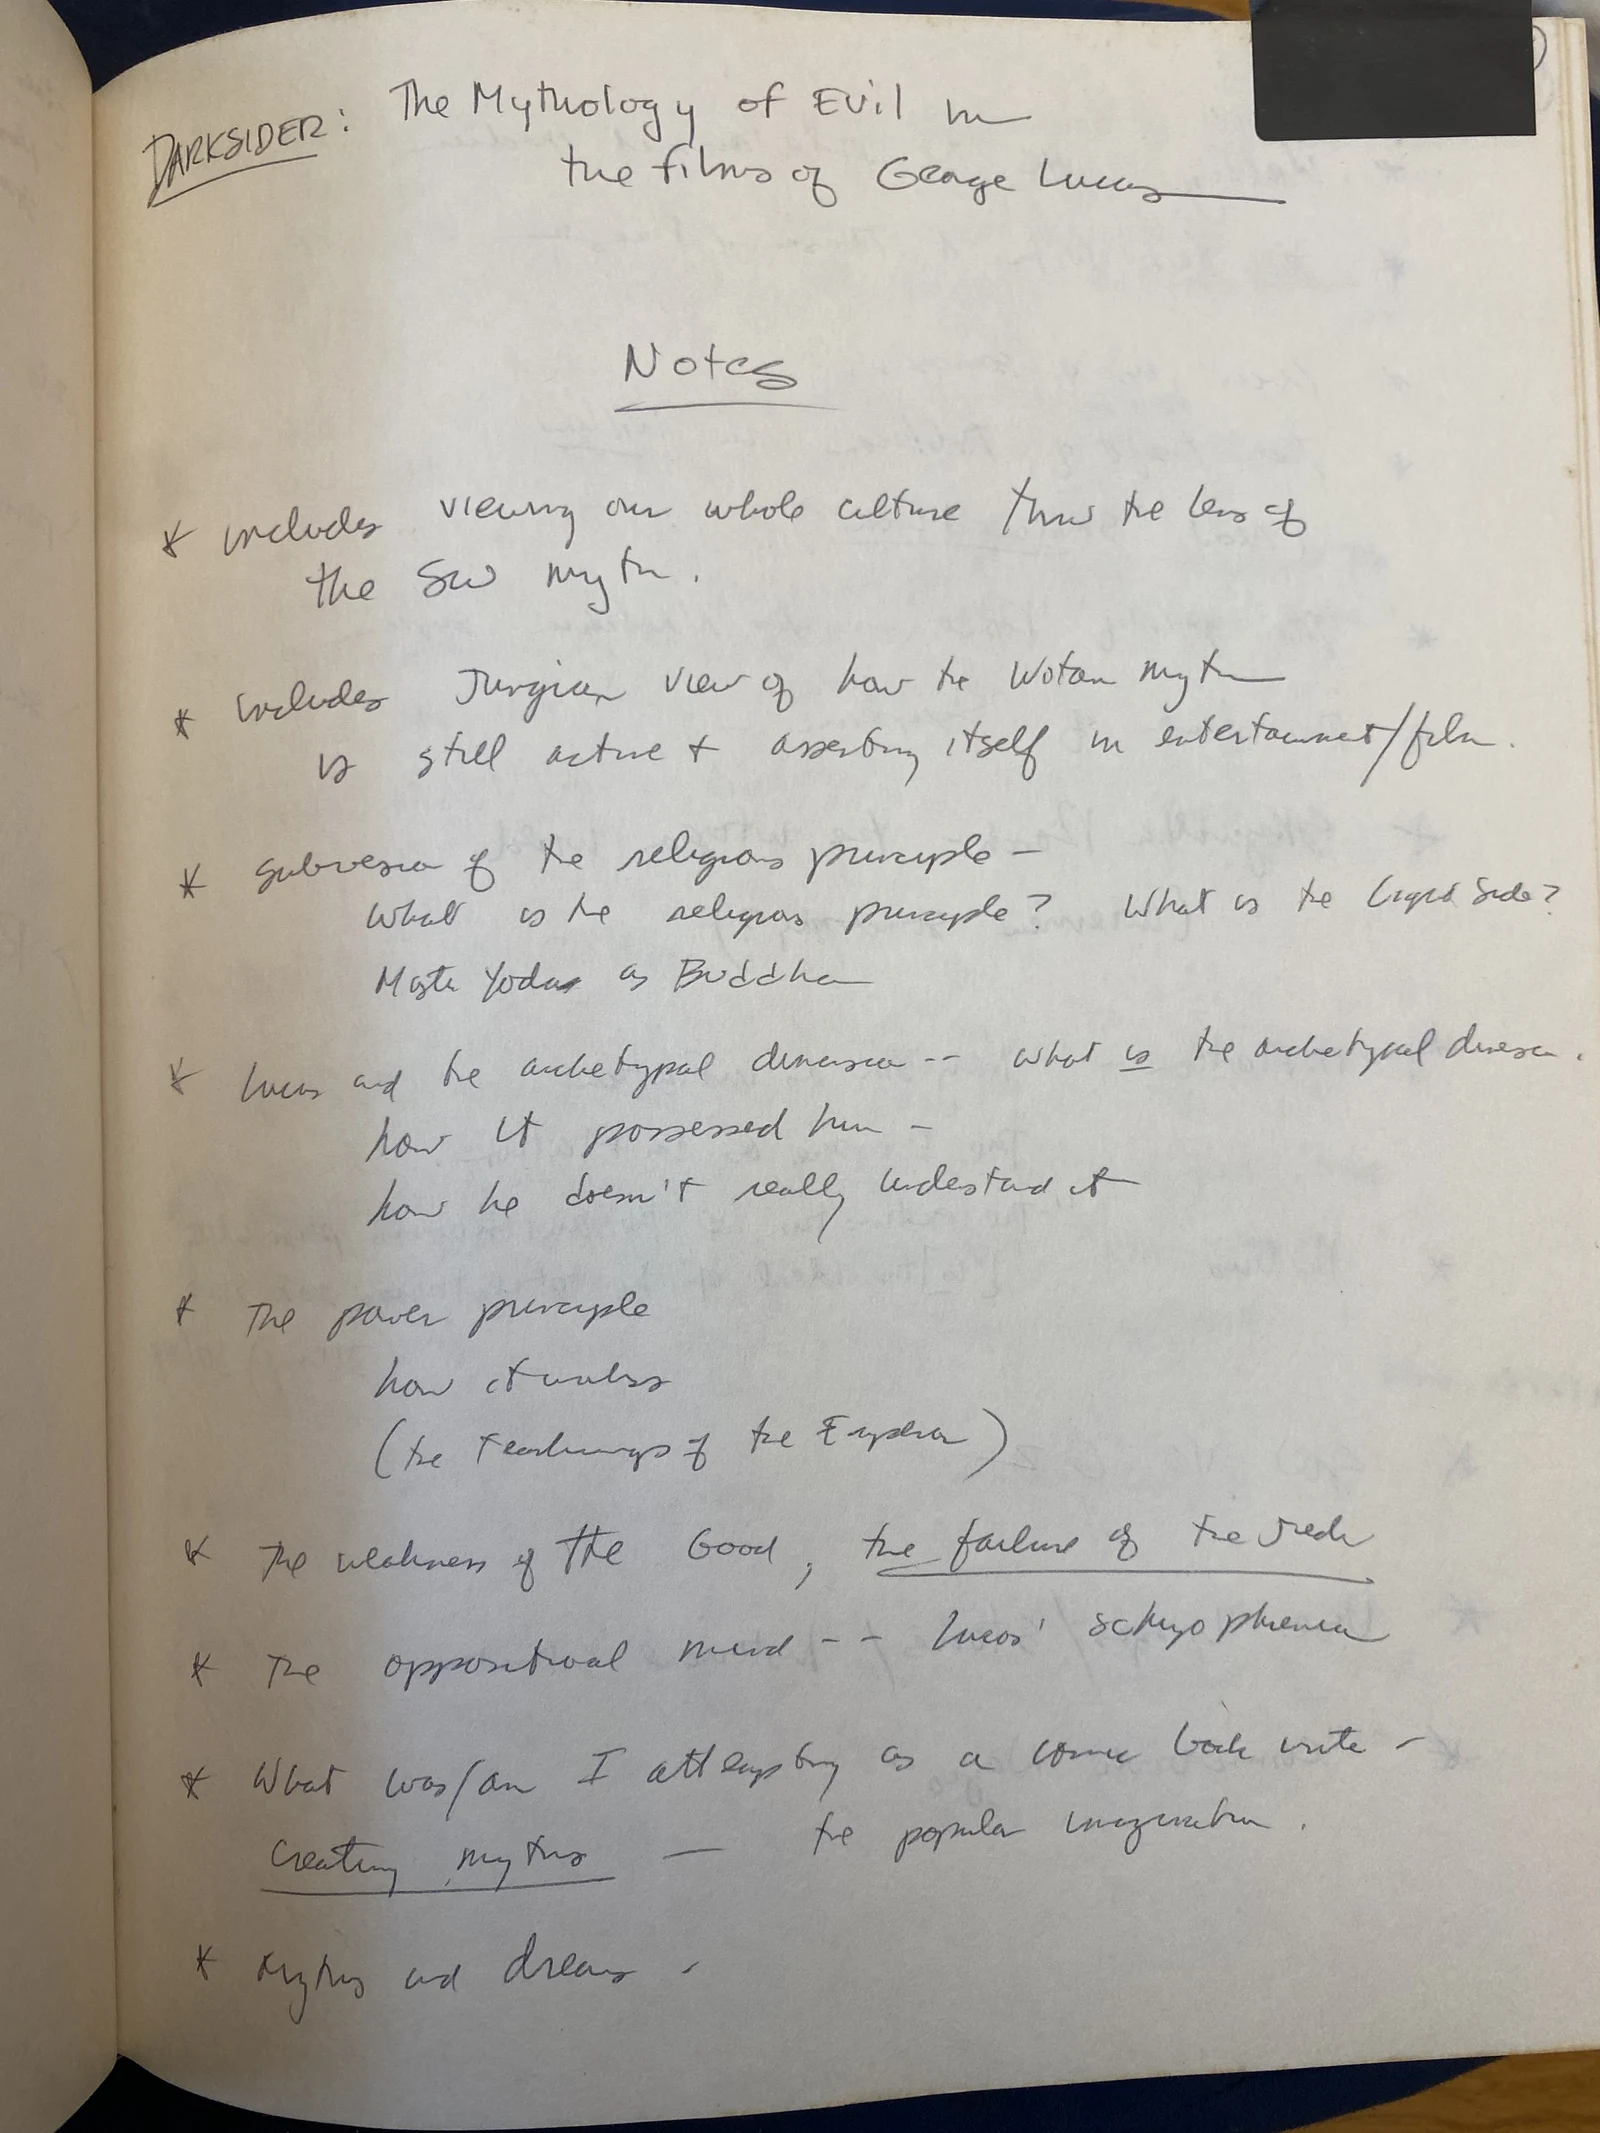 DARKSIDER: The Mythology of Evil in
the films of George Lucas
Notes
* includes viewing our whole culture thru the lens of
the SW myth.
* includes Jungian view of how the Wotan myth
is still active + asserting itself in entertainment/film.
* subversion of the religious principle -
What is the religious principle? What is the Light Side?
Master Yoda as Buddha
* Lucas and the archetypal dimension -- what is the archetypal dimension.
how it possessed him -
how he doesn't really understand it
* The power principle
how it works
(the Teachings of the Emperor)
* The weakness of THE Good, the failure of the Jedi
* The oppositional mind -- Lucas' schizophrenia
* What was/am I attempting as a comic book writer -
creating myths - the popular imagination.
* Myths and dreams -